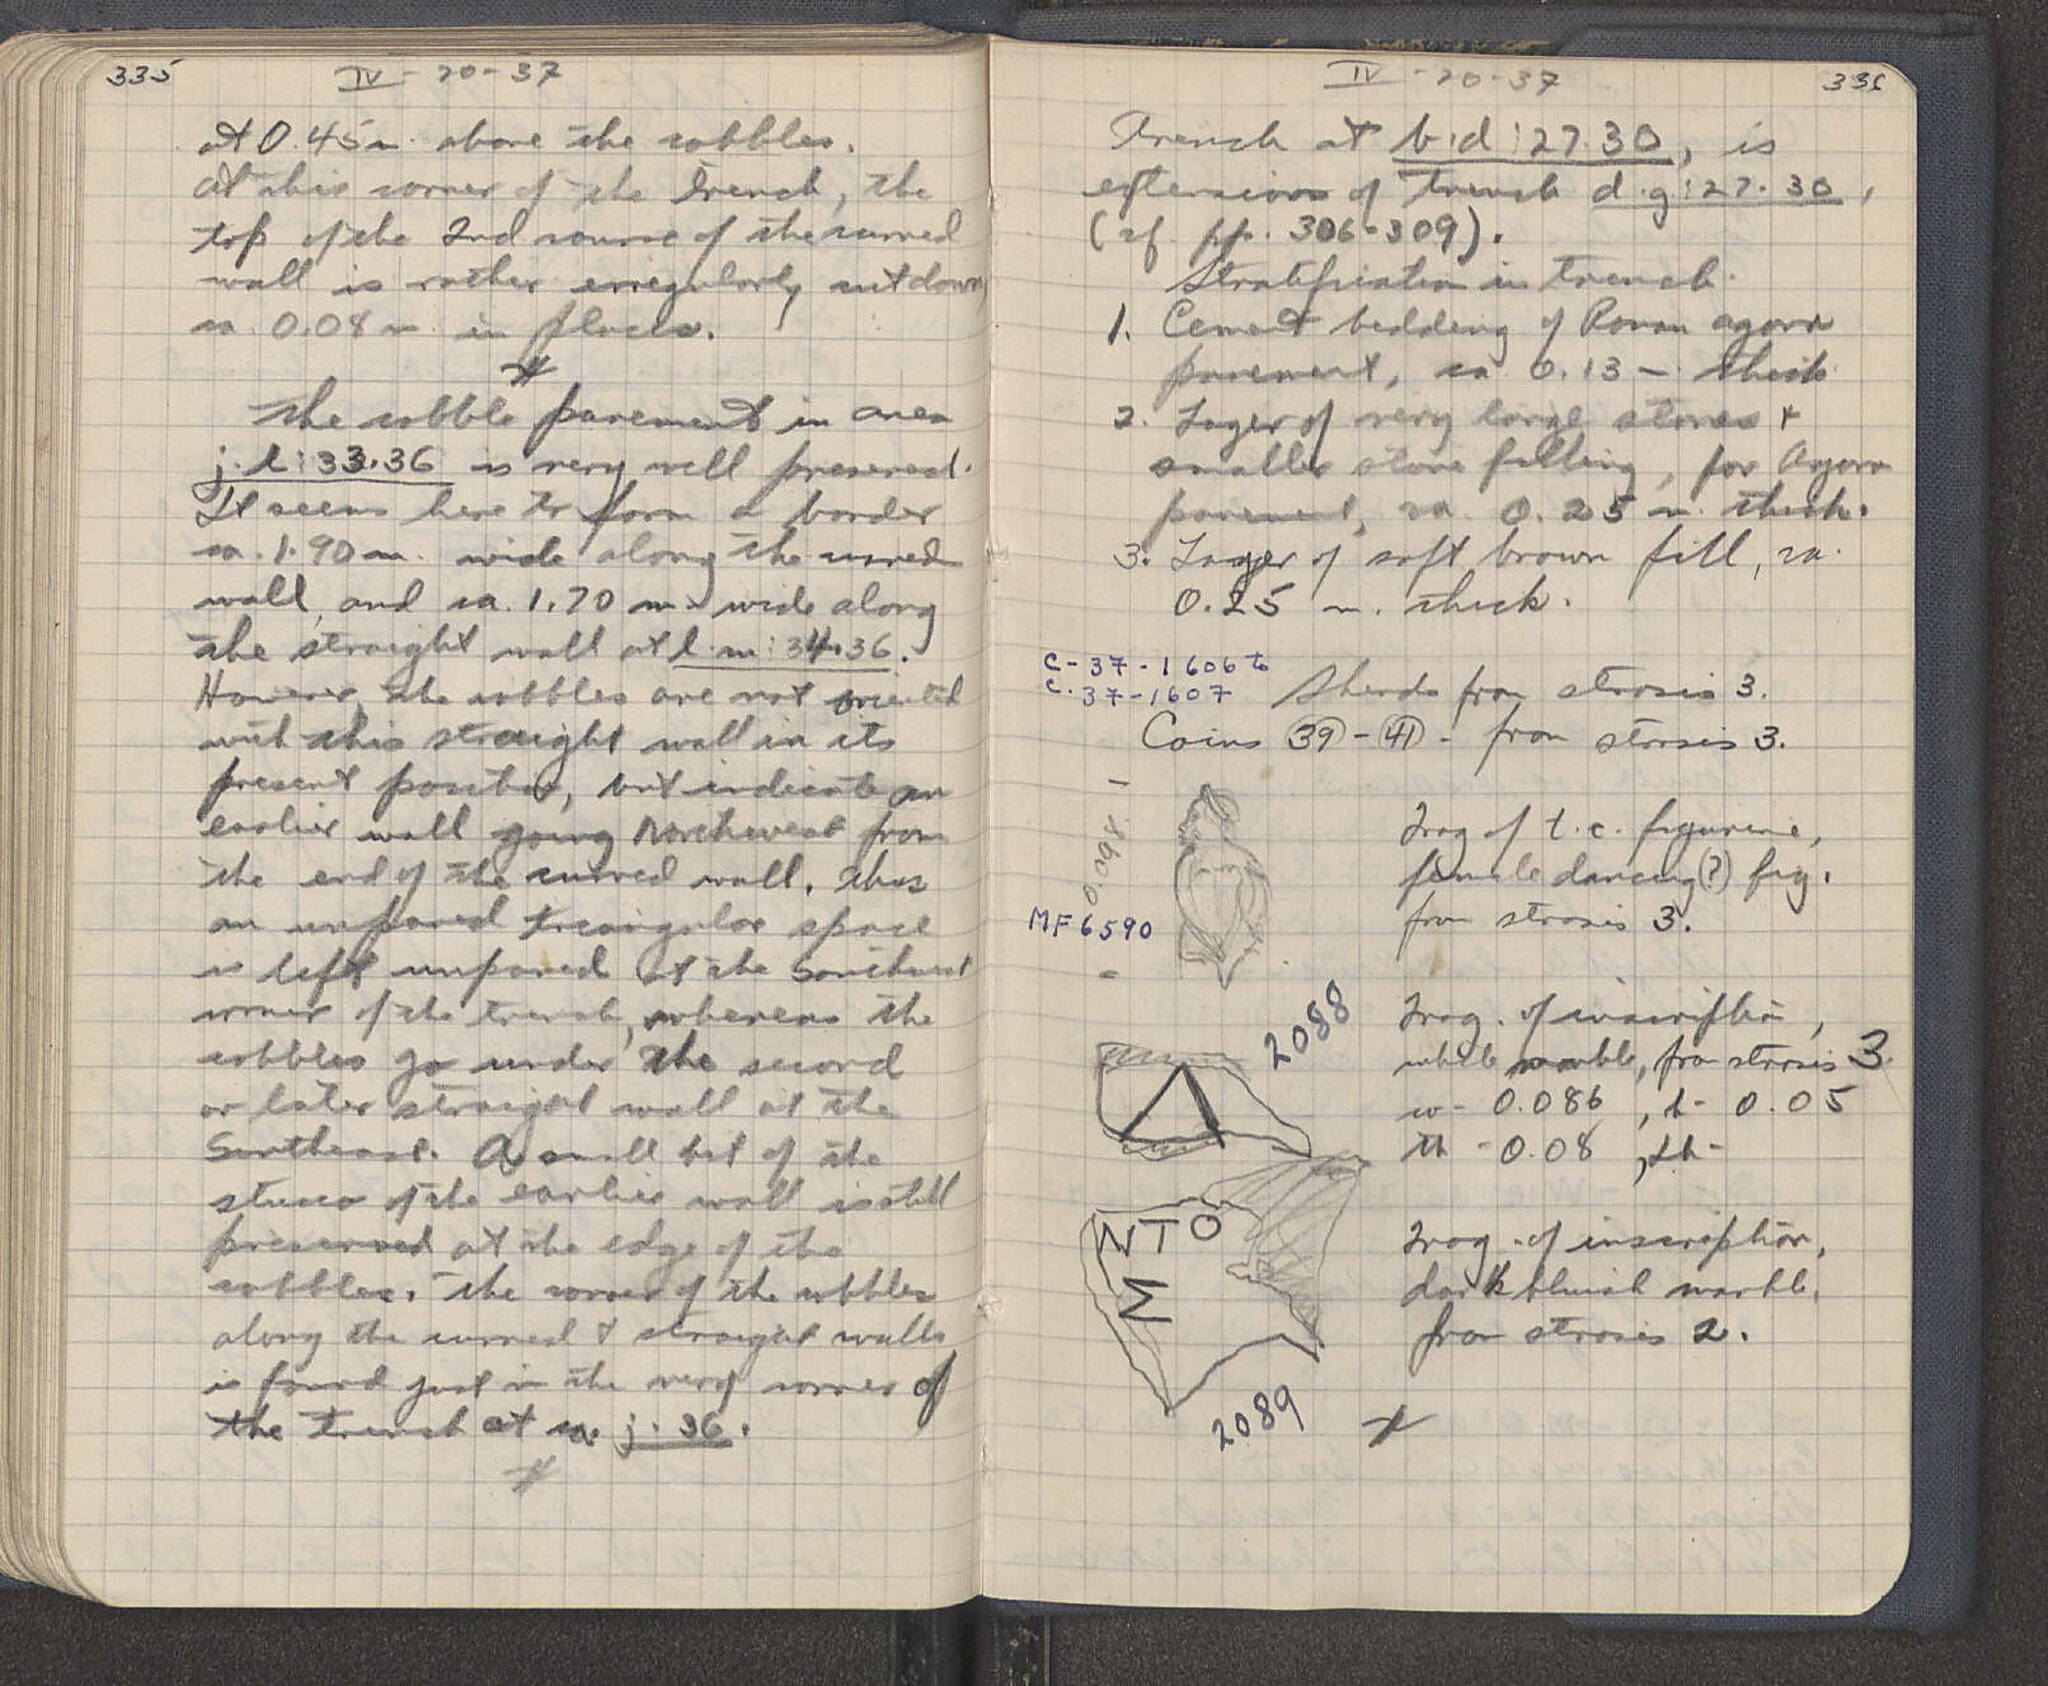 335
IV - 20 - 37
at 0.45 m. above the cobbles.
At this corner of the trench, the
top of the 2nd course of the curved
wall is rather irregularly cut down,
ca. 0.08 m. in places.
The cobble pavement in area
j.l:33.36 is very well preserved.
It seems here to form a border
ca. 1.90 m. wide along the curved
wall, and ca. 1.70 m. wide along
the straight wall at l.m:34.36.
However, the cobbles are not oriented
with this straight wall in its
present position, but indicate an
earlier wall going Northwest from
the end of the curved wall. Thus
an unpaved triangular space
is left unpaved at the Southwest
corner of the trench, whereas the
cobbles go under the second
or later straight wall at the
Southeast. A small bit of the
stucco of the earlier wall is still
preserved at the edge of the
cobbles. The corner of the cobbles
along the curved & straight walls
is found just in the very corner of
the trench at ca. j.36.
IV - 20 - 37
336
Trench at b.d:27.30, is
extension of trench d.g:27.30,
(cf. pp. 306-309).
Stratification in trench.
1. Cement bedding of Roman agora
pavement, ca 0.13 m. thick
2. Layer of very large stones +
smaller stone filling, for Agora
pavement, ca. 0.25 m. thick.
3. Layer of soft brown fill, ca.
0.25 m. thick.
C-37-1606 to
C-37-1607
Sherds from strosis 3.
Coins 39 - 41 - from strosis 3.
0.098
MF 6590
Frag of t.c. figurine,
female dancing(?) fig.
from strosis 3.
2088
Frag. of inscription,
white marble, from strosis 3.
w- 0.086, h- 0.05
th - 0.08, Lh-
NTO
M
2089
Frag. of inscription,
dark bluish marble,
from strosis 2.